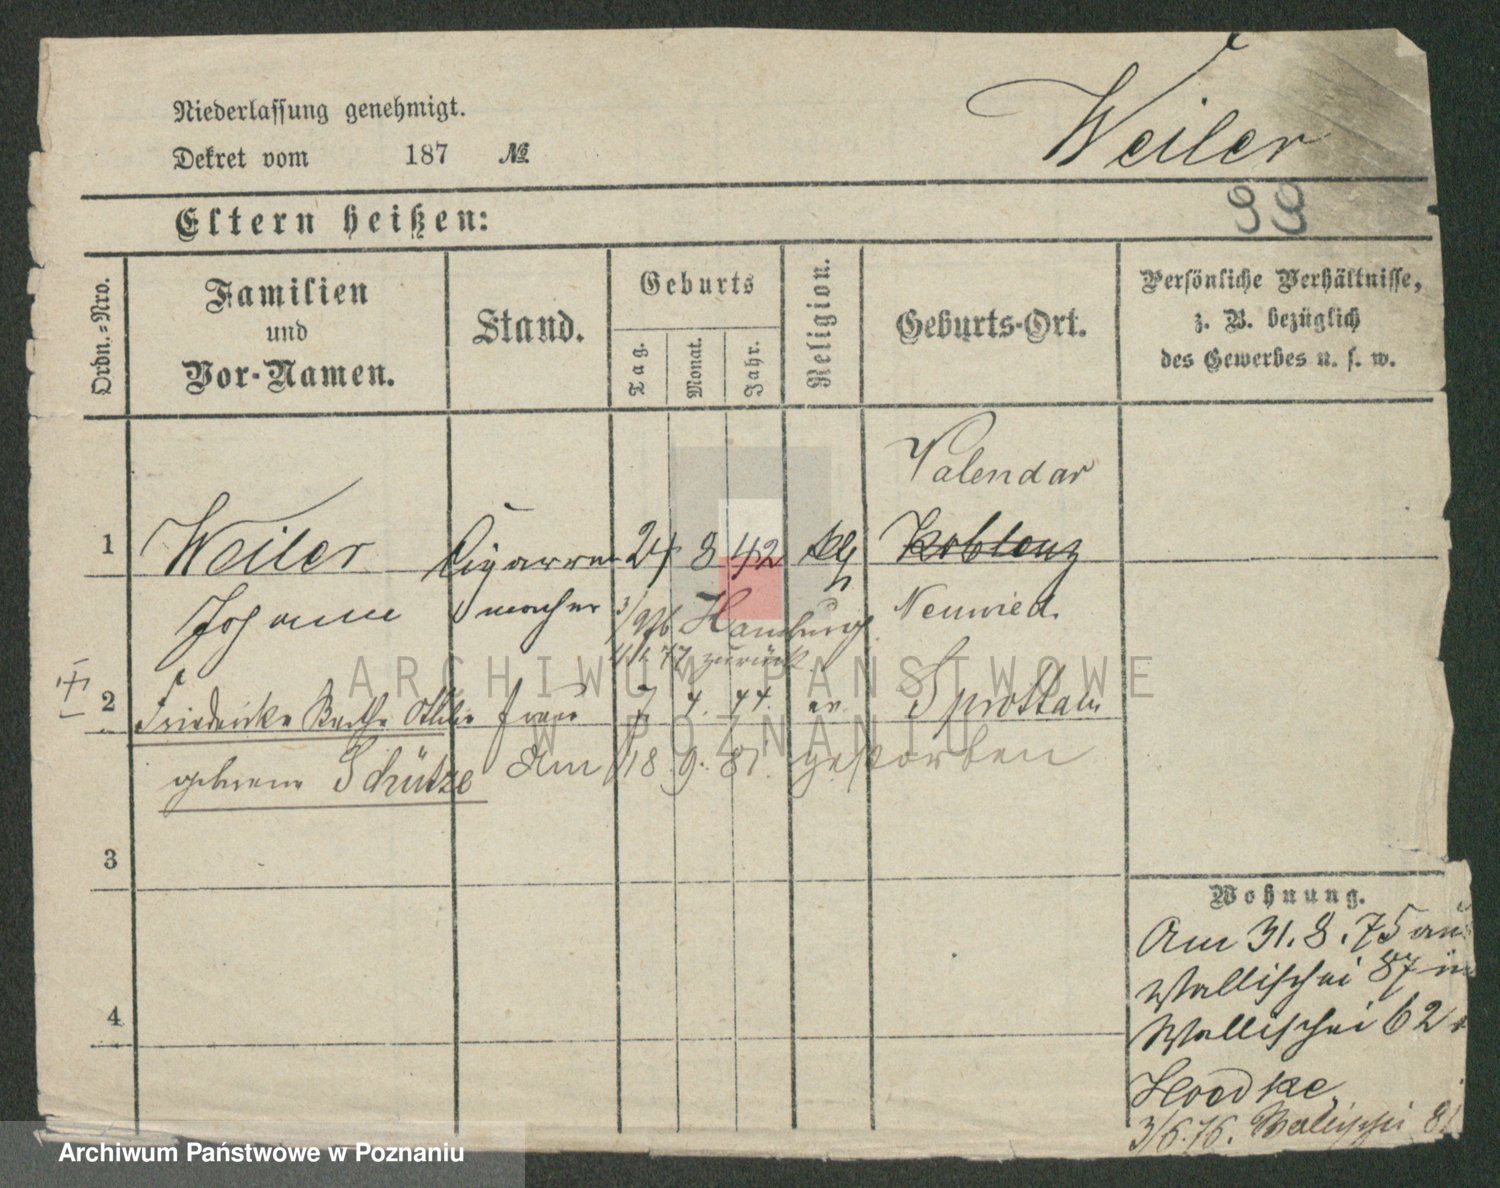 Niederlassung genehmigt.
Dekret vom 187 №
Weiler
99
Eltern heißen:
Ordn.=Nro.
Familien
und
Vor-Namen.
Stand.
Geburts
Tag.
Monat.
Jahr.
Religion.
Geburts-Ort.
Persönliche Verhältnisse,
z. B. bezüglich
des Gewerbes u. s. w.
Valendar
1 Weiler Cigarren 24 8 42 Koblenz
Johann macher Hamburg Neuwied.
77 zurück
2 Friedericke Bertha Ottilie Frau 7 4. 44. ev. Sprottau
geborene Schütze Am 18. 9. 81. gestorben
3
4
Wohnung.
Am 31. 8. 75 aus
Wallischei 87 in
Wallischei 62
Hoedke
3/6.76. Wallischei
ARCHIWUM PAŃSTWOWE
W POZNANIU
Archiwum Państwowe w Poznaniu